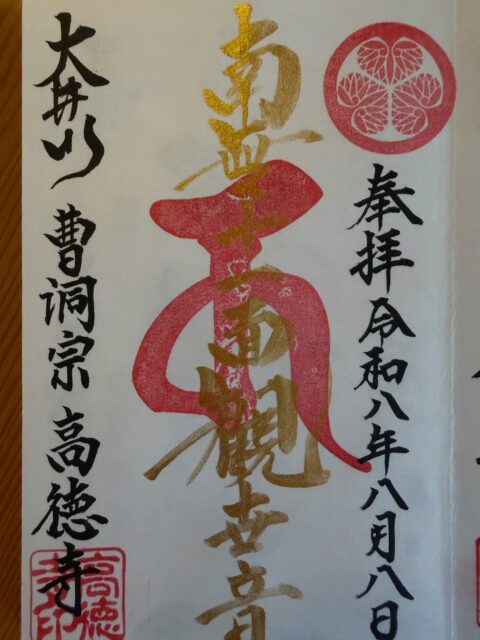 奉拝 令和八年八月八日
南無十一面観世音
大井川 曹洞宗 高徳寺
高徳